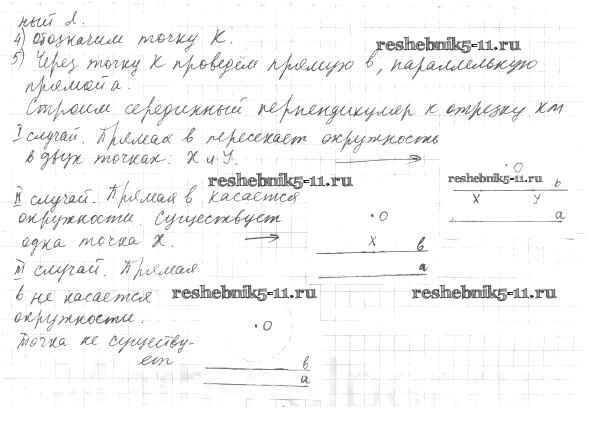 ный d.
4) Обозначим точку K.
reshebnik5-11.ru
5) Через точку K проведём прямую b, параллельную
прямой a.
Строим серединный перпендикуляр к отрезку KM
I случай. Прямая b пересекает окружность
в двух точках: X и Y.
reshebnik5-11.ru
O
reshebnik5-11.ru
b
X Y
a
II случай. Прямая b касается
окружности. Существует
одна точка X.
O
X b
a
III случай. Прямая
b не касается
окружности.
Точка не существу-
ет
reshebnik5-11.ru
reshebnik5-11.ru
O
b
a